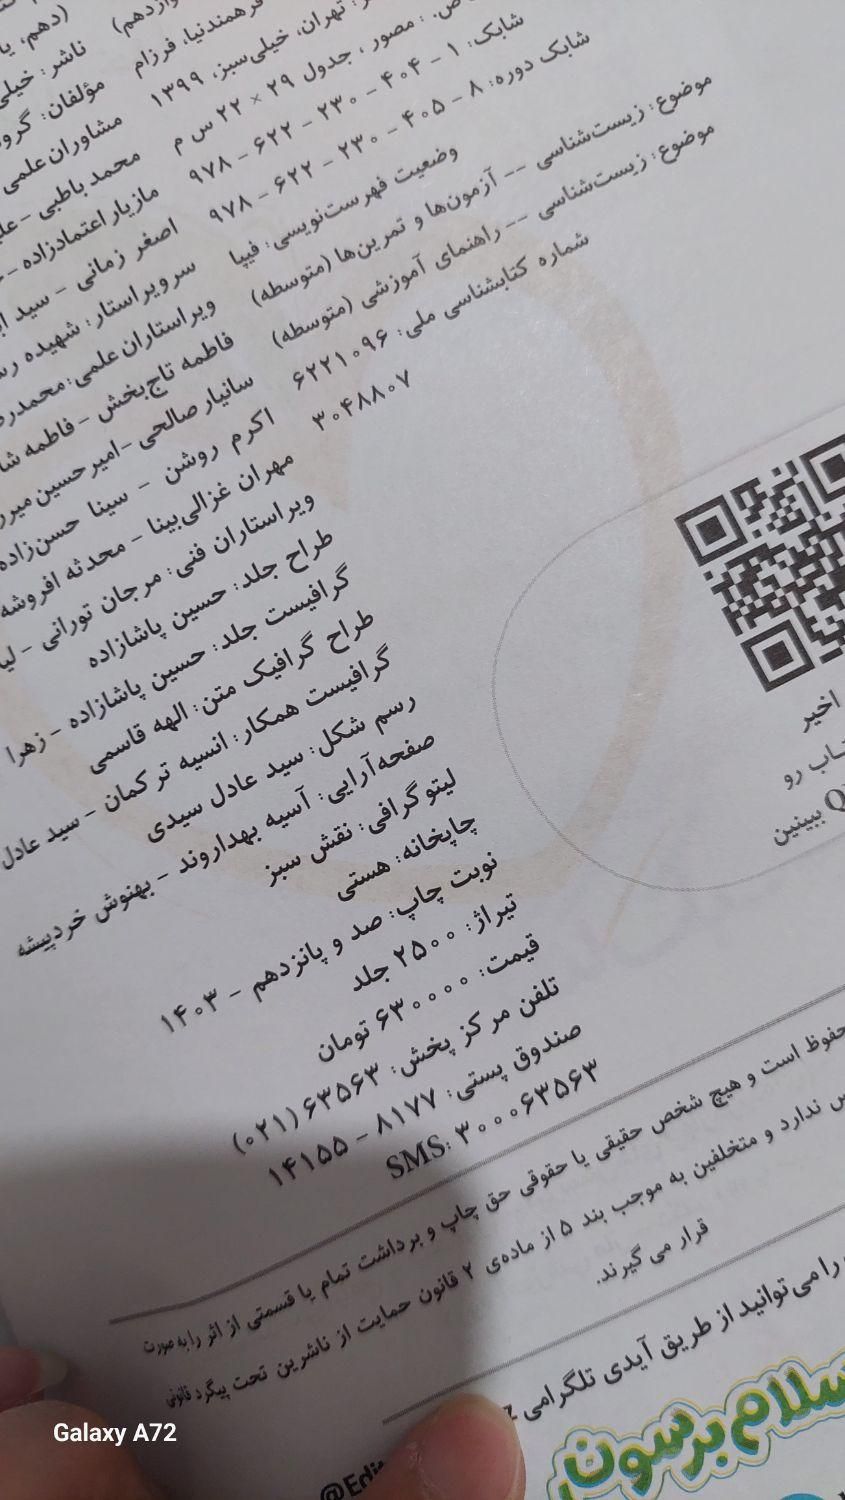 (دهم، یا
ناشر: خیلی
مؤلفان: گروه
مشاوران علمی
محمد باطبی - علی
مازیار اعتمادزاده -
اصغر زمانی - سید
سرویراستار: شهیده
ویراستاران علمی: محمدرضا
فاطمه تاج‌بخش - فاطمه
سانیار صالحی - امیرحسین
اکرم روشن - سینا حسن‌زاده
مهران غزالی‌بینا - محدثه افروشه
ویراستاران فنی: مرجان تورانی -
طراح جلد: حسین پاشازاده
گرافیست جلد: حسین پاشازاده - زهرا
طراح گرافیک متن: الهه قاسمی
گرافیست همکار: انسیه ترکمان - سید عادل
رسم شکل: سید عادل سیدی
صفحه‌آرایی: آسیه بهداروند - بهنوش خردپیشه
لیتوگرافی: نقش سبز
چاپخانه: هستی
نوبت چاپ: صد و پانزدهم - ۱۴۰۳
تیراژ: ۲۵۰۰ جلد
قیمت: ۶۳۰۰۰۰ تومان
تلفن مرکز پخش: ۶۳۵۶۳ (۰۲۱)
صندوق پستی: ۸۱۷۷ - ۱۴۱۵۵
SMS: ۳۰۰۰۶۳۵۶۳
فرهمندنیا، فرزام
تهران، خیلی‌سبز، ۱۳۹۹
ص. : مصور ، جدول ۲۹ × ۲۲ س م
شابک: ۱ - ۴۰۴ - ۲۳۰ - ۶۲۲ - ۹۷۸
شابک دوره: ۸ - ۴۰۵ - ۲۳۰ - ۶۲۲ - ۹۷۸
وضعیت فهرست‌نویسی: فیپا
موضوع: زیست‌شناسی -- آزمون‌ها و تمرین‌ها (متوسطه)
موضوع: زیست‌شناسی -- راهنمای آموزشی (متوسطه)
شماره کتابشناسی ملی: ۶۲۲۱۰۹۶
۳۰۴۸۸۰۷
اخیر
رو
ببینین
است و هیچ شخص حقیقی یا حقوقی حق چاپ و برداشت تمام یا قسمتی از اثر را به صورت
ندارد و متخلفین به موجب بند ۵ از ماده‌ی ۲ قانون حمایت از ناشرین تحت پیگرد قانونی
قرار می گیرند.
را می‌توانید از طریق آیدی تلگرامی
سلام برسون
Galaxy A72